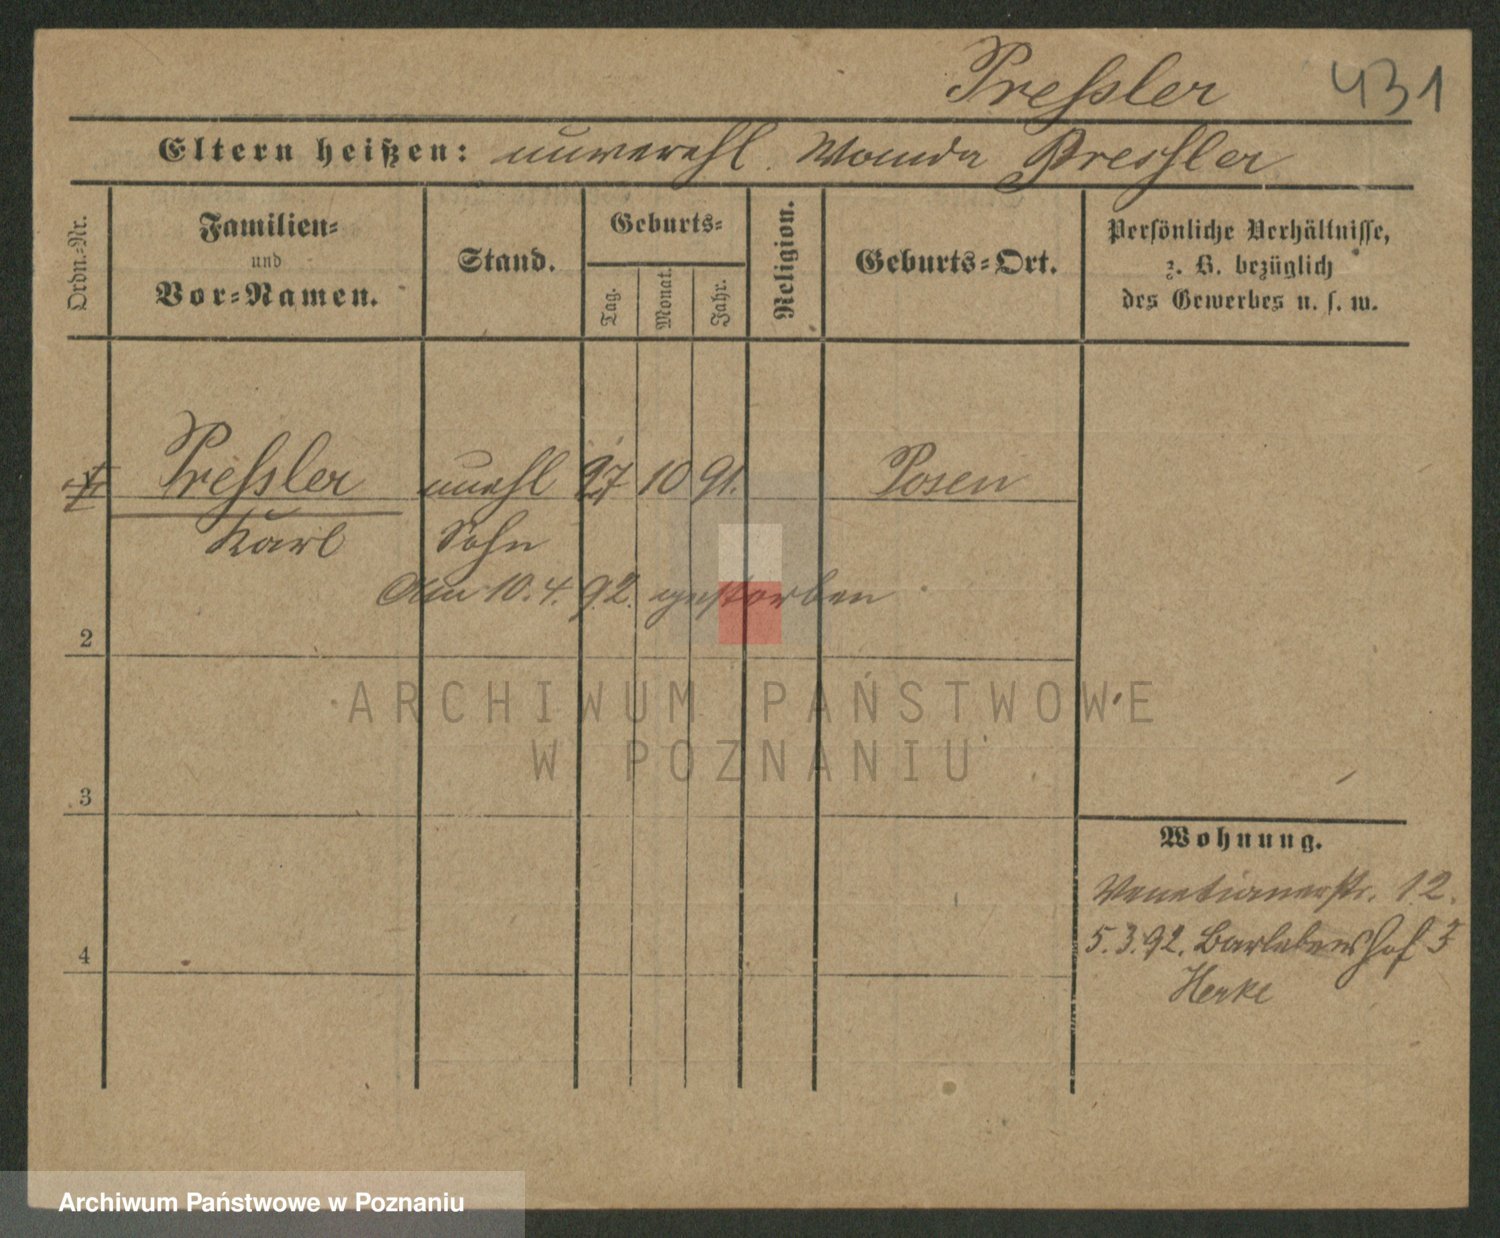 Pressler 431
Eltern heißen: unverehl. Wanda Pressler
Ordn.-Nr.
Familien-
und
Vor-Namen.
Stand.
Geburts-
Tag.
Monat.
Jahr.
Religion.
Geburts-Ort.
Persönliche Verhältnisse,
z. B. bezüglich
des Gewerbes u. s. w.
1 Pressler unehl 27 10 91. Posen
Karl Sohn
Am 10.4.92. gestorben
2
ARCHIWUM PAŃSTWOWE
W POZNANIU
3
Wohnung.
Venetianerstr. 12.
5.3.92. Barlebenshof 3
4
Herke
Archiwum Państwowe w Poznaniu